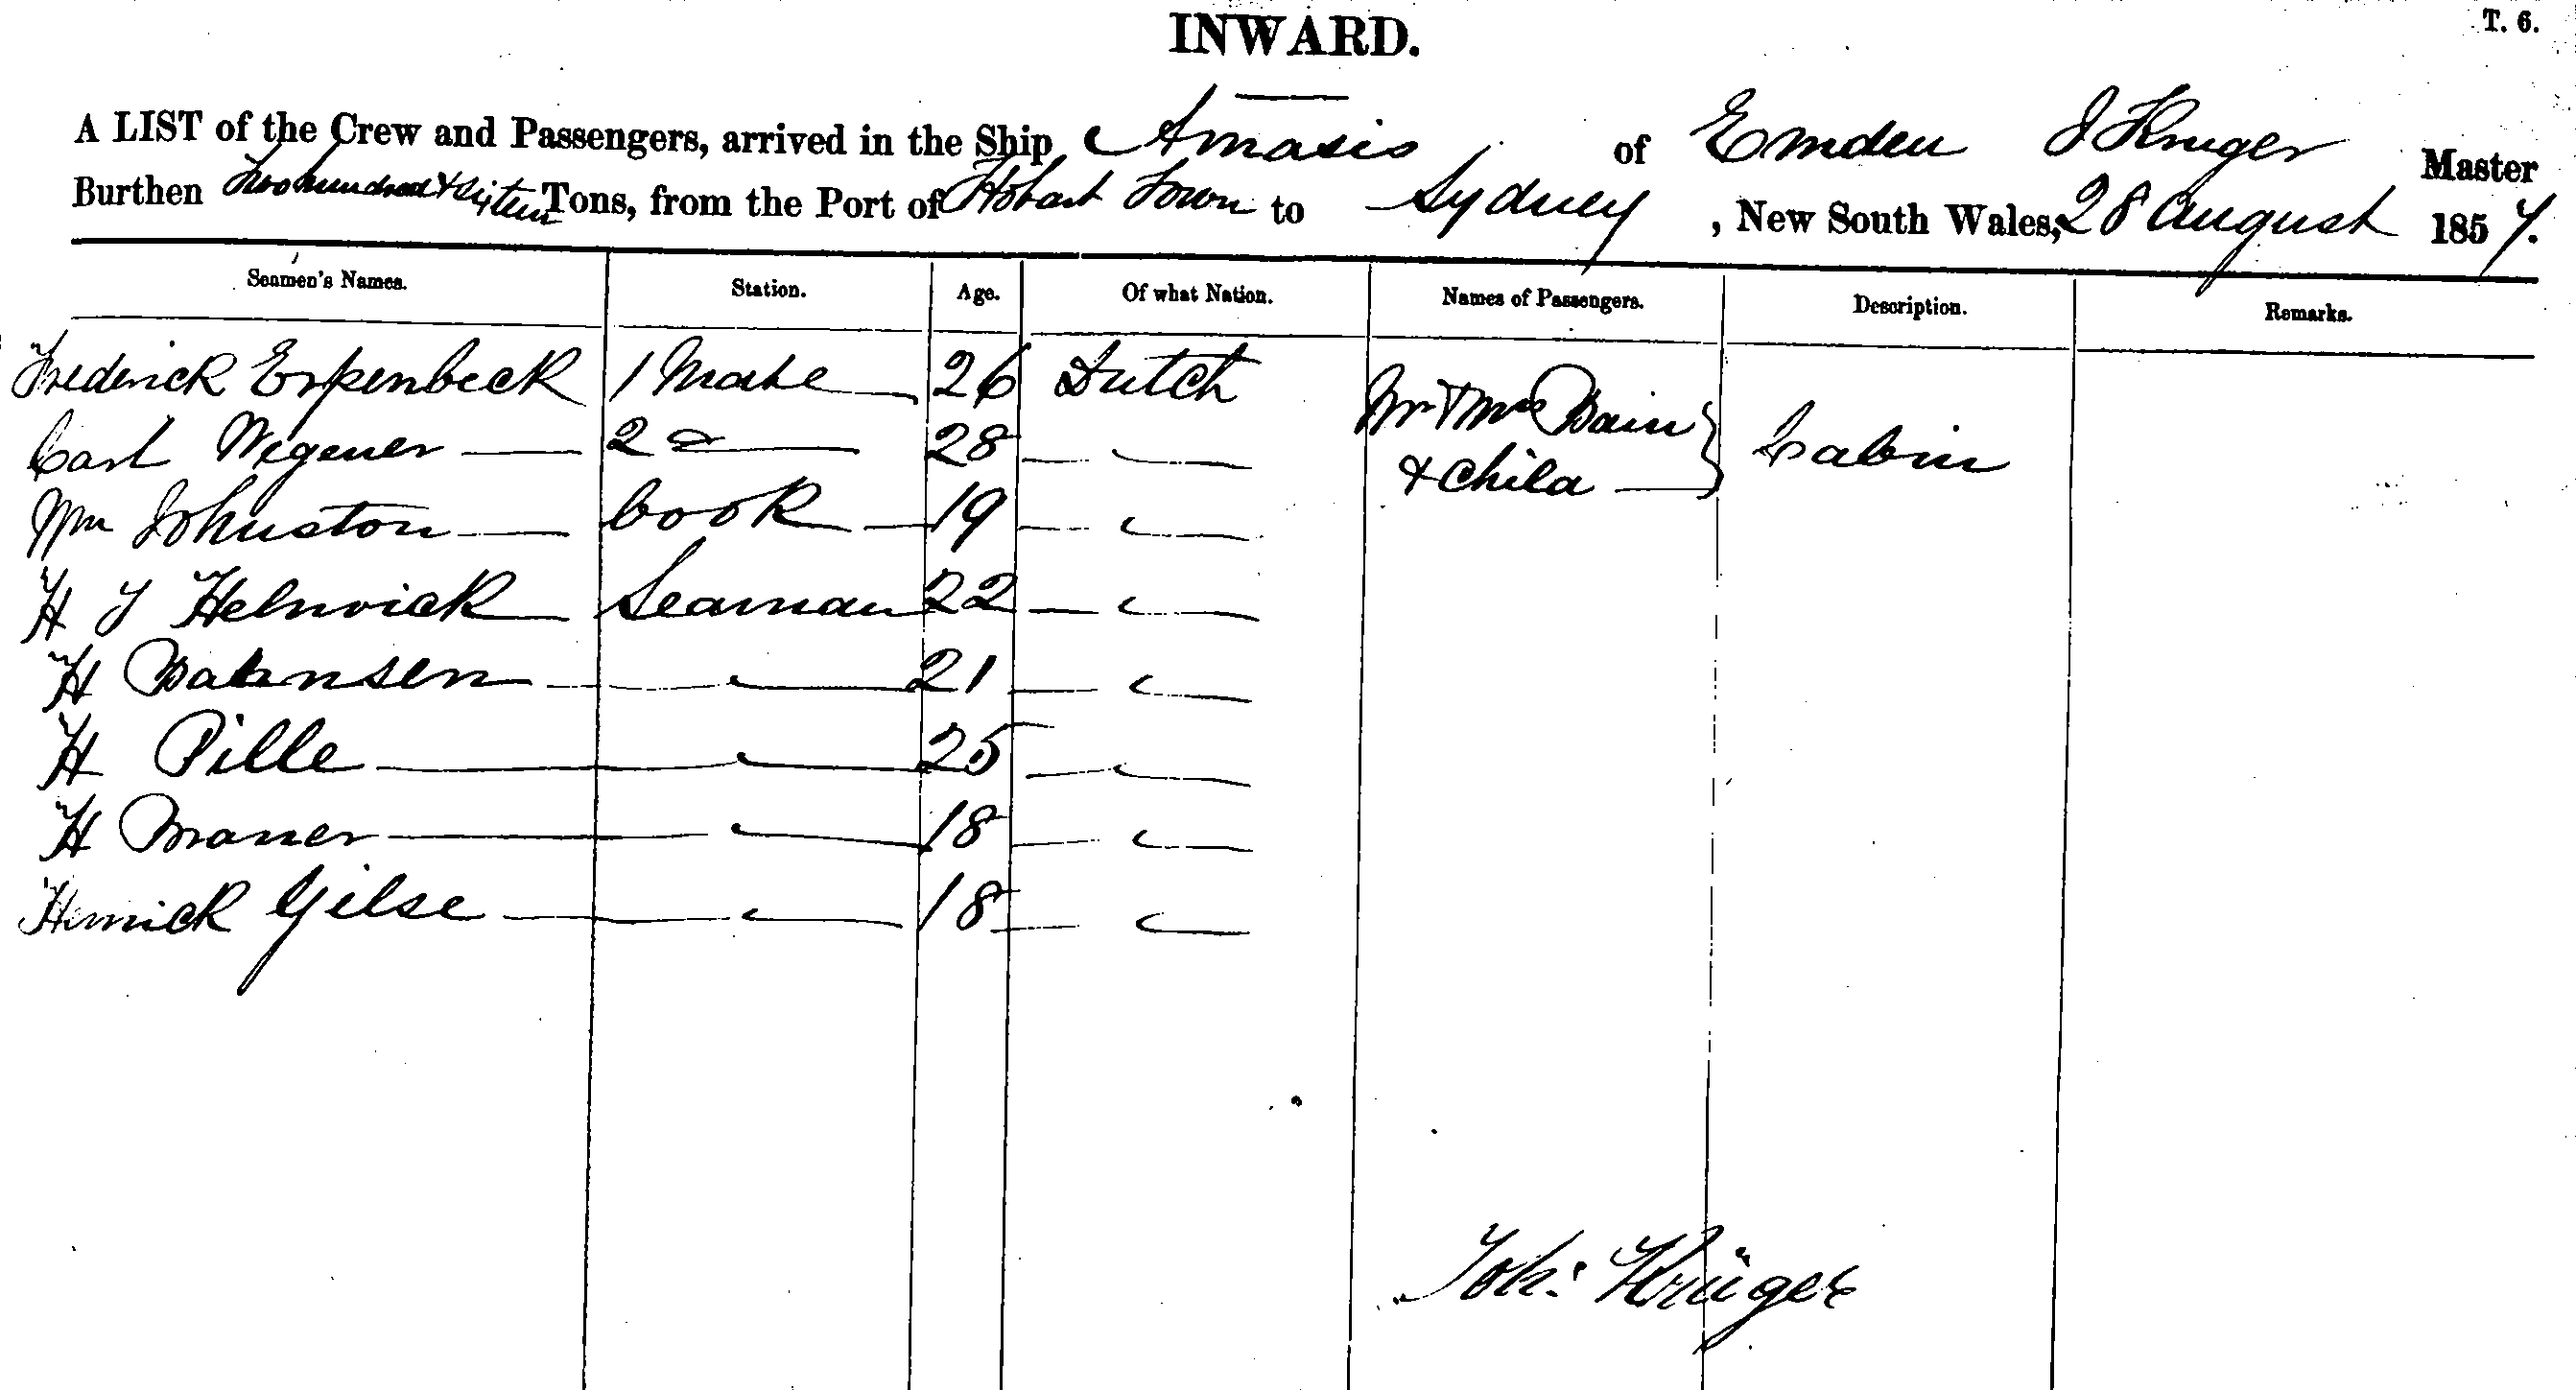 INWARD.
T. 6.
A LIST of the Crew and Passengers, arrived in the Ship Amasis of Emden J Kruger Master
Burthen Two hundred & Sixteen Tons, from the Port of Hobart Town to Sydney, New South Wales, 28 August 1857.
Seamen's Names. Station. Age. Of what Nation. Names of Passengers. Description. Remarks.
Frederick Erpenbeck 1 Mate 26 Dutch Mr & Mrs Bain
Carl Wegener 2 Do 28 & Child Cabin
Wm Johnston Cook 19
H J Helnvick Seaman 22
H Bahnsen 21
H Pille 25
H 18
Gilse 18
Joh: Krüger